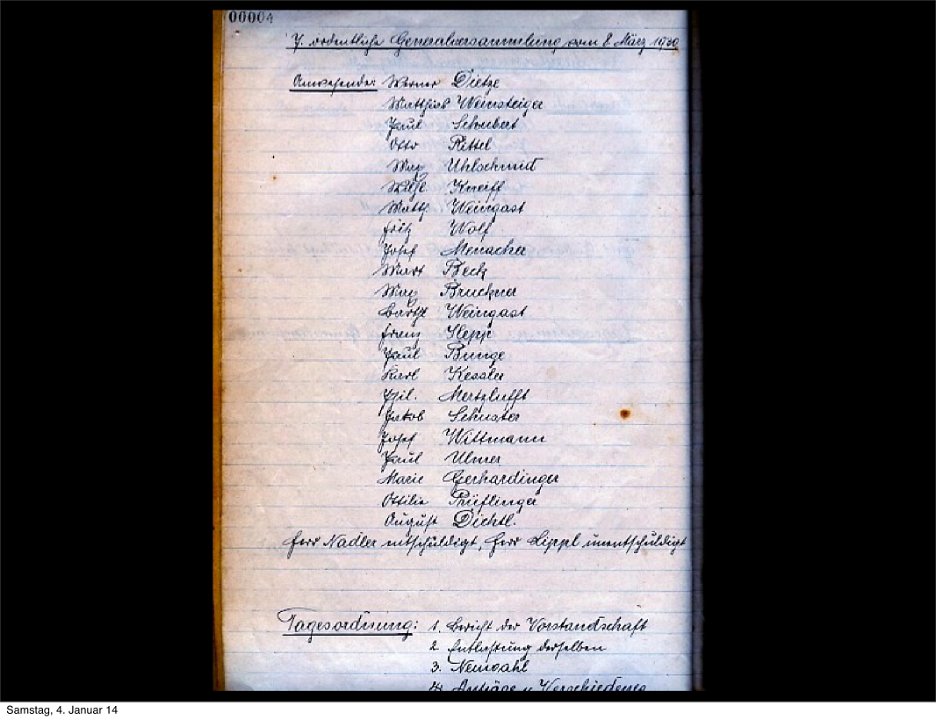 00004
7. ordentliche Generalversammlung vom 8. März 1930
Anwesende: Werner Dietze
Matthias Weinsteiger
Paul Schubert
Otto Rittel
Max Uhlschmid
Wilh. Kneiff
Matth. Weingast
Fritz Wolf
Josef Menacher
Mart Beck
Max Bruckner
Barthl Weingast
Franz Slepp
Paul Bunge
Karl Kessler
Phil. Mertzlufft
Jakob Schuster
Josef Wittmann
Paul Ulmer
Marie Gerhardinger
Ottilie Prüflinger
August Dichtl.
Herr Nadler entschuldigt, Herr Lippl unentschuldigt
Tagesordnung: 1. Bericht der Vorstandschaft
2 Entlastung derselben
3. Neuwahl
4. Anträge u Verschiedenes
Samstag, 4. Januar 14